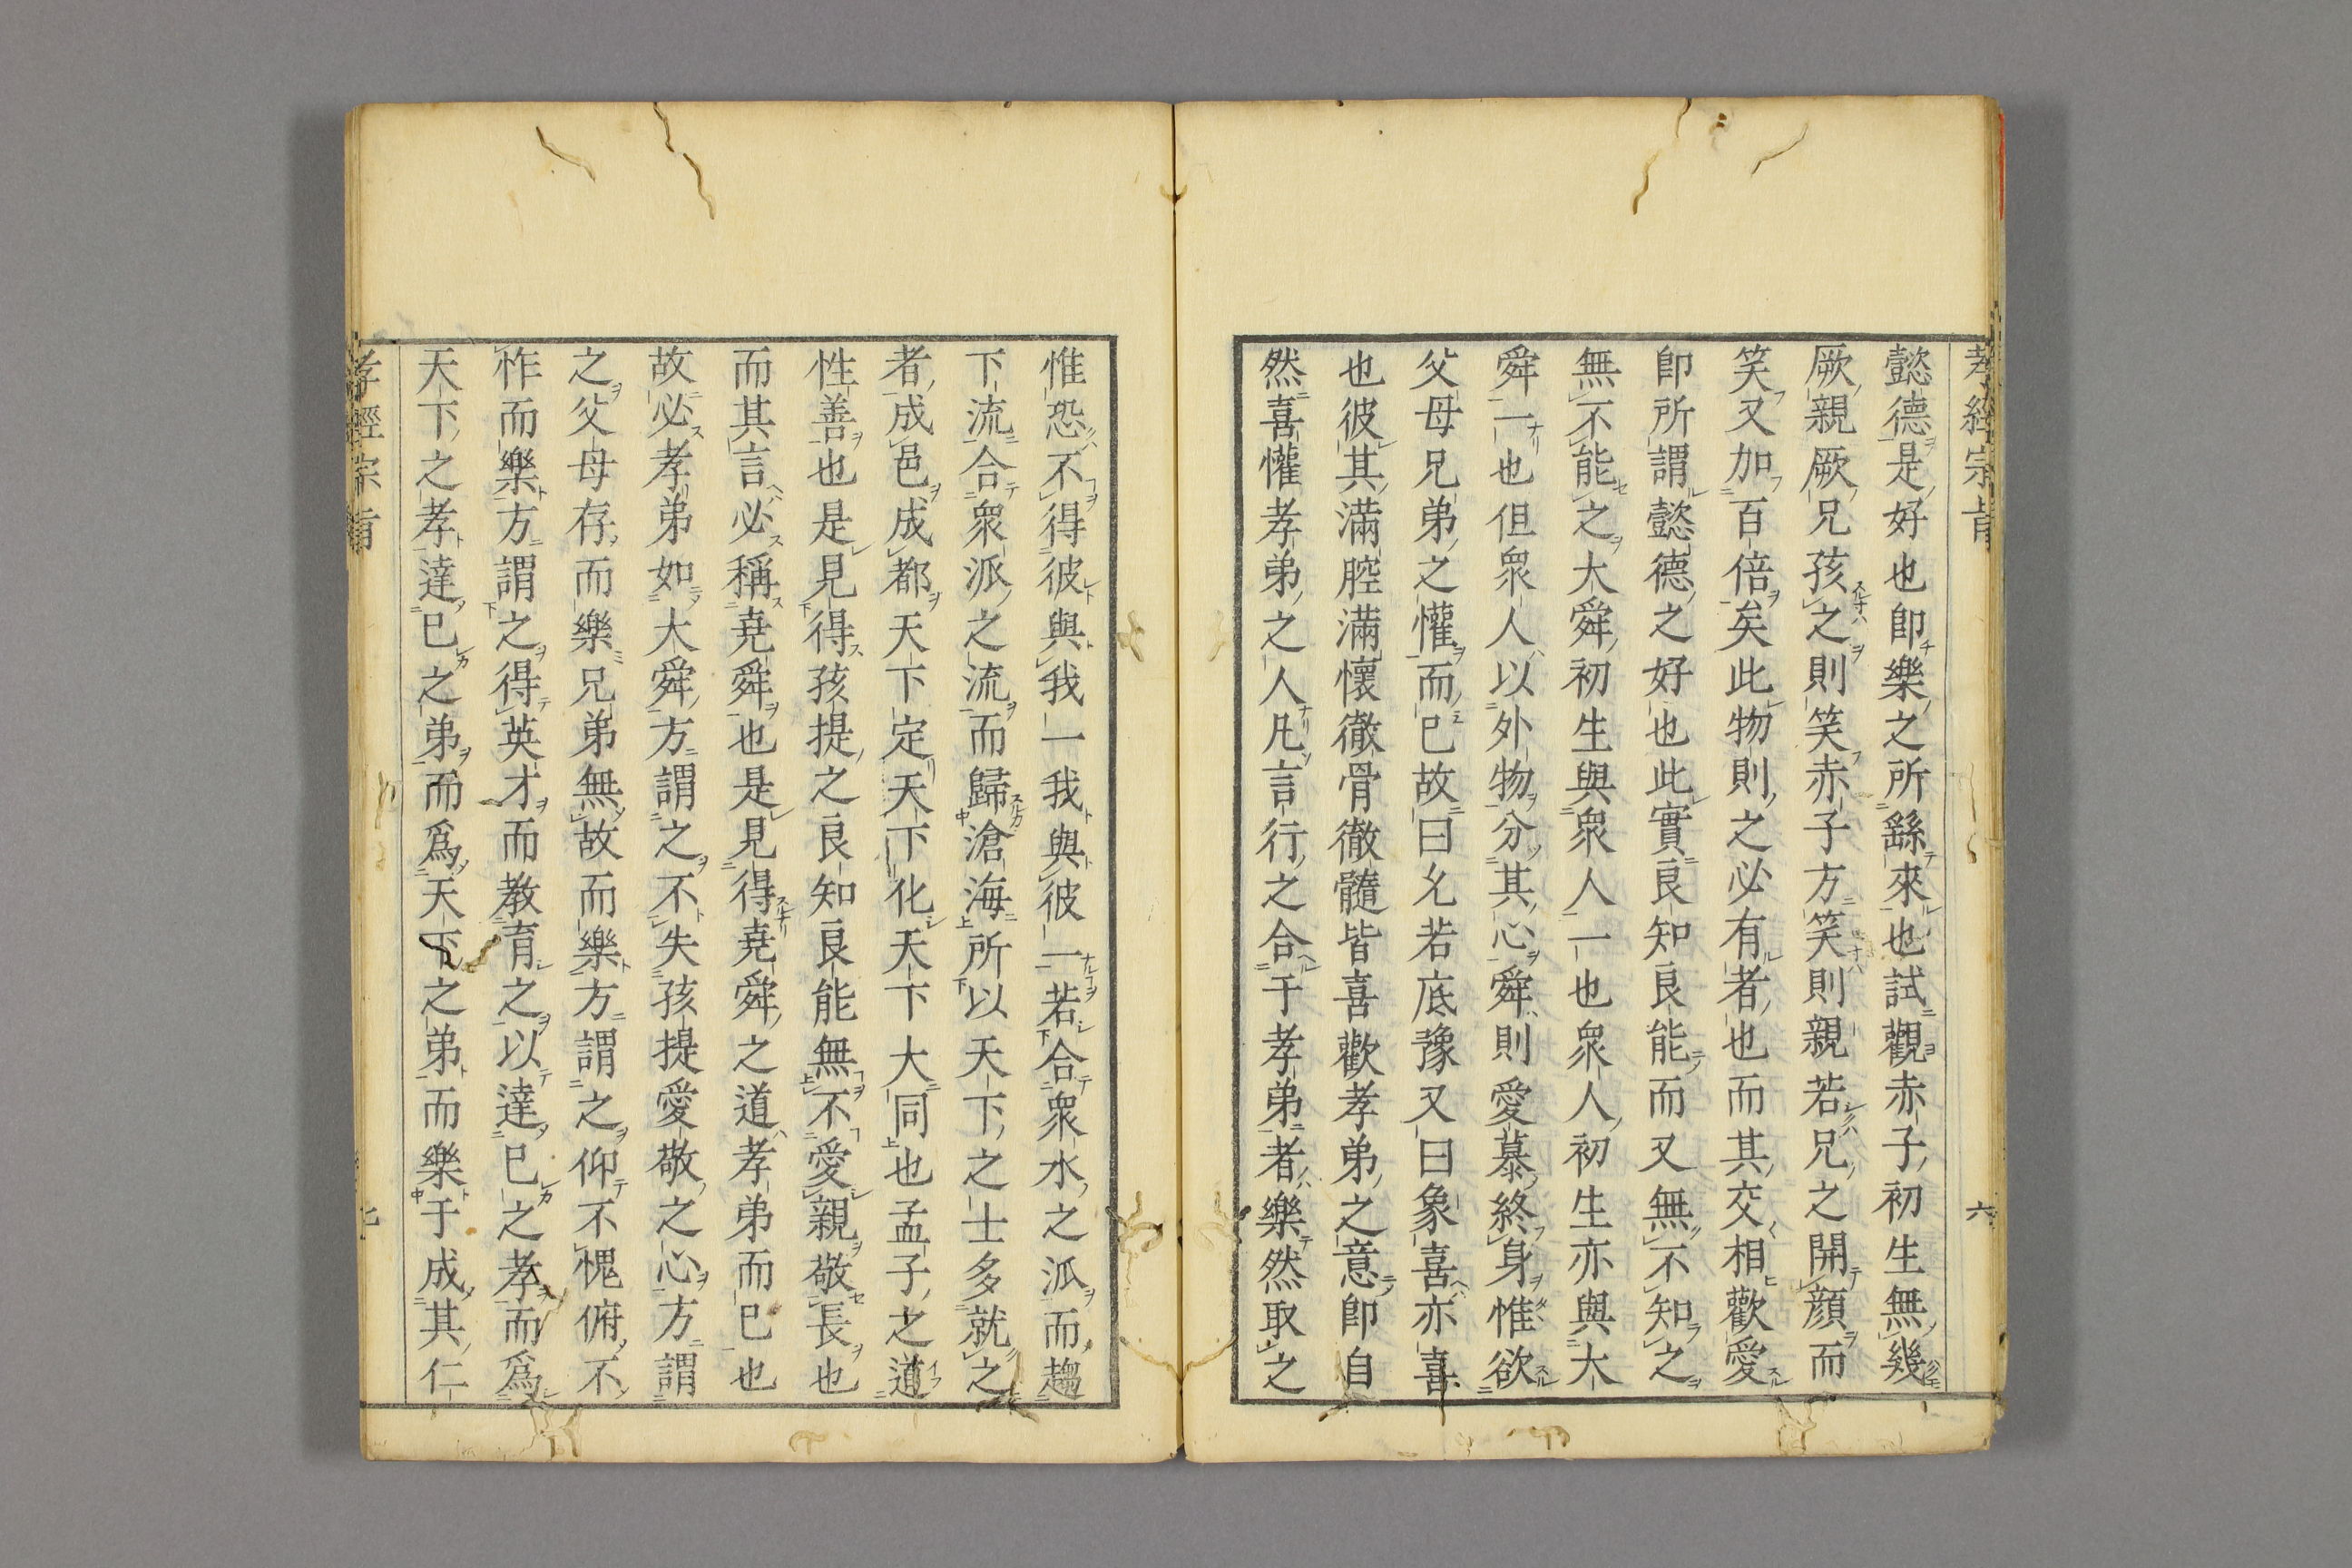 孝經宗旨
六
懿德是好也卽樂之所繇來也試觀赤子初生無幾
厥親厥兄孩之則笑赤子方笑則親若兄之開顏而
笑又加百倍矣此物則之必有者也而其交相歡愛
卽所謂懿德之好也此實良知良能而又無不知之
無不能之大舜初生與衆人一也衆人初生亦與大
舜一也但衆人以外物分其心舜則愛慕終身惟欲
父母兄弟之懽而已故曰允若底豫又曰象喜亦喜
也彼其滿腔滿懷徹骨徹髓皆喜歡孝弟之意卽自
然喜懽孝弟之人凡言行之合于孝弟者樂然取之
惟恐不得彼與我一我與彼一若合衆水之派而趨
下流合衆派之流而歸滄海所以天下之士多就之
者成邑成都天下定天下化天下大同也孟子之道
性善也是見得孩提之良知良能無不愛親敬長也
而其言必稱堯舜也是見得堯舜之道孝弟而已也
故必孝弟如大舜方謂之不失孩提愛敬之心方謂
之父母存而樂兄弟無故而樂方謂之仰不愧俯不
怍而樂方謂之得英才而教育之以達已之孝而爲
天下之孝達已之弟而爲天下之弟而樂于成其仁
孝經宗旨
七